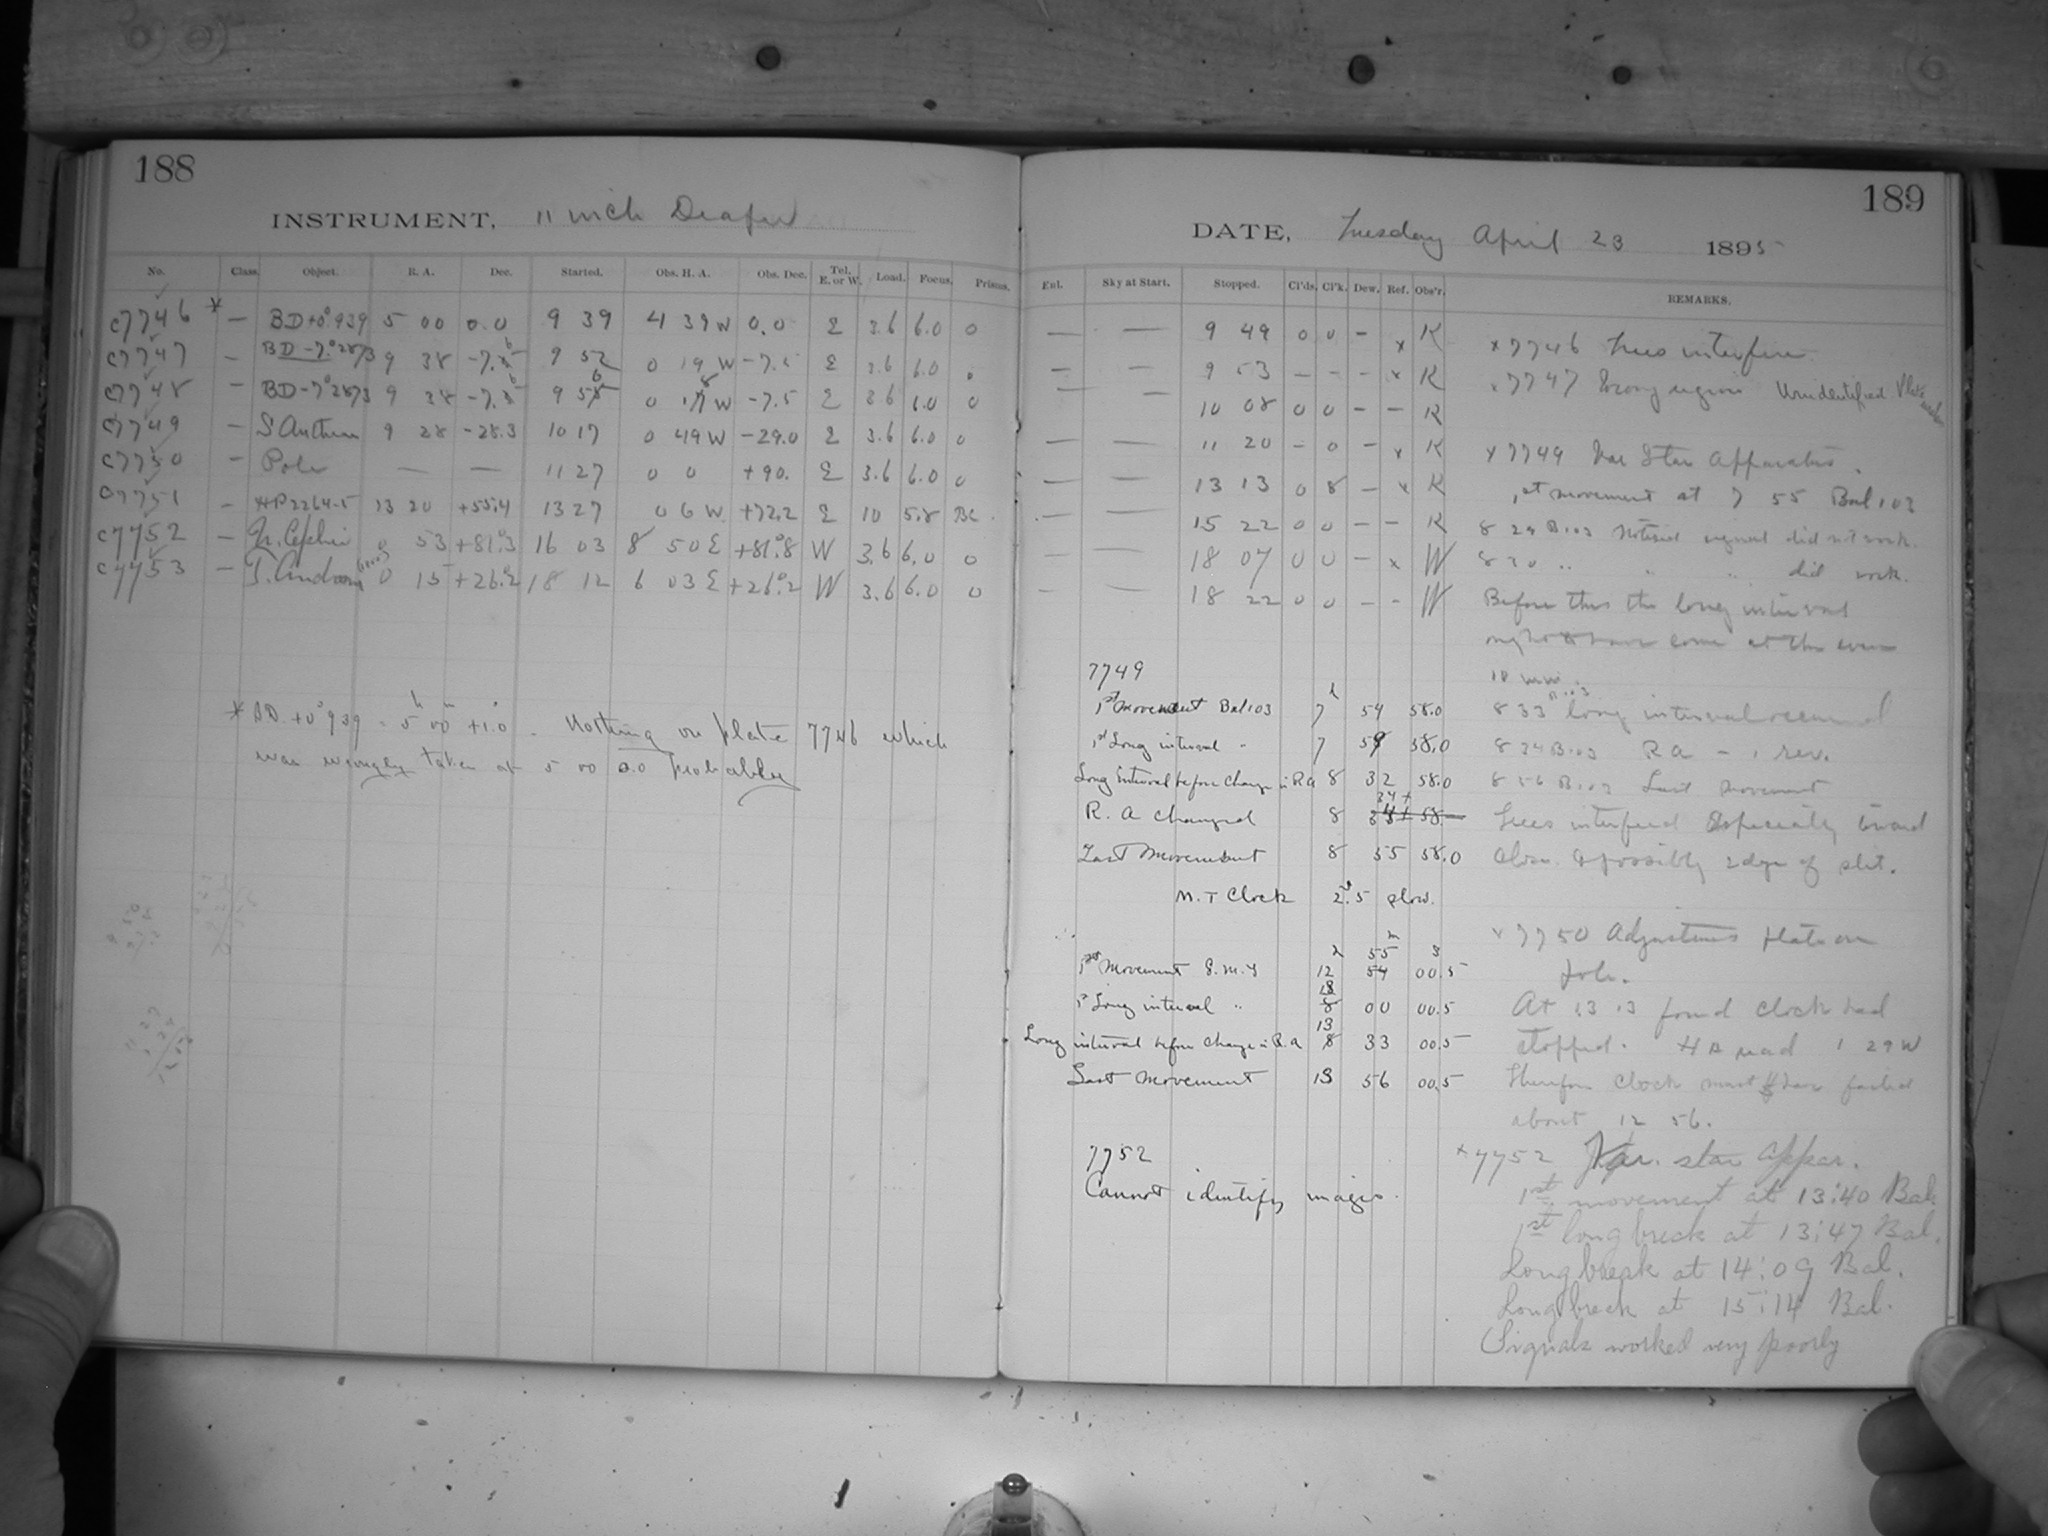 188
INSTRUMENT, 11 inch Draper
No. Class. Object. R. A. Dec. Started. Obs. H. A. Obs. Dec. Tel. E. or W. Load. Focus. Prisms.
C7746 * — BD+0°939 5 00 0.0 9 39 4 39 W 0.0 E 3.6 6.0 0
C7747 — BD-7°2873 9 38 9 52 0 19 W -7.5 E 3.6 6.0 0
C7748 — BD-7°2873 9 38 0 W -7.5 E 3.6 6.0 0
C7749 — S Antliae 9 28 -28.3 10 17 0 49 W -29.0 E 3.6 6.0 0
C7750 — Pole — — 11 27 0 0 +90. E 3.6 6.0 0
C7751 — HP2264-5 13 20 +55.4 13 27 0 6 W +72.2 E 10 5.8 BC
C7752 — U. Cephei 0 53 +81°.3 16 03 8 50 E +81°.8 W 3.6 6.0 0
C7753 — T. Androm 0 15 +26°.2 18 12 6 03 E +26°.2 W 3.6 6.0 0
* BD. +0°939 = 5h 00m +1°.0. Nothing on plate 7746 which
was wrongly taken at 5 00 0.0 probably
189
DATE, Tuesday April 23 1895
Enl. Sky at Start. Stopped. Cl'ds. Cl'k. Dew. Ref. Obs'r. REMARKS.
— — 9 49 0 0 – x K x7746 Trees interfere
— — 9 53 – – – x K x7747 Wrong region Unidentified Plate
— 10 08 0 0 – – K
— — 11 20 – 0 – x K x7749 Var Star Apparatus.
— — 13 13 0 8 – x K 1st movement at 7 55 Bal 103
— — 15 22 0 0 – – K 8 29 B.103 Noticed signal did not work.
— — 18 07 0 0 – x W 8 30 " " " did work.
— — 18 22 0 0 – – W Before this the long interval
ought to have come at the even
10 min.
8 33 B.103 long interval occurred
8 34 B.103 R a – 1 rev.
8 56 B.103 Last movement
Trees interfered especially toward
close & possibly edge of slit.
7749
1st movement Bal 103 7h 54 58.0
1st Long interval " 7 59 58.0
Long Interval before Change in R a 8 32 58.0
R. A changed 8 34±
Last Movement 8 55 58.0
M. T Clock 2s.5 slow.
1st Movement S.M.T 12h 55m 00.5
1st Long interval " 13 00 00.5
Long interval before Change in R.a 13 33 00.5
Last Movement 13 56 00.5
x7750 Adjustment plate on
pole.
At 13 13 found clock had
stopped. H A read 1 29 W
Therefore clock must have failed
about 12 56.
7752
Cannot identify images.
x7752 Var. star appar.
1st movement at 13:40 Bal.
1st long break at 13:47 Bal.
Long break at 14:09 Bal.
Long break at 15:14 Bal.
Signals worked very poorly